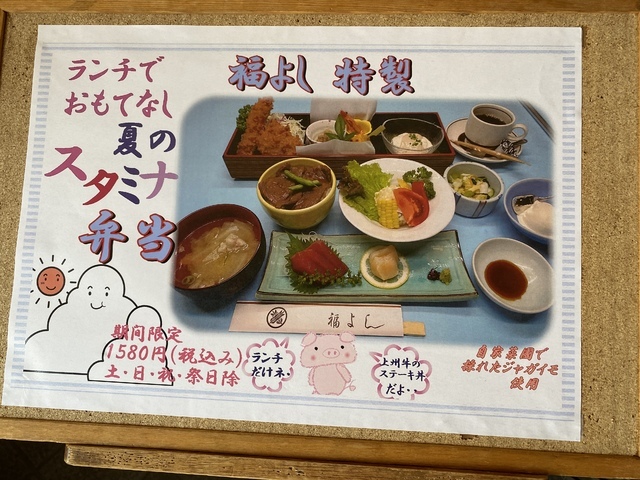 福よし 特製
ランチで
おもてなし
夏の
スタミナ
弁当
福よし
期間限定
1580円(税込み)
土・日・祝・祭日除
ランチ
だけネ・
上州牛の
ステーキ丼
だよ・・
自家菜園で
採れたジャガイモ
使用